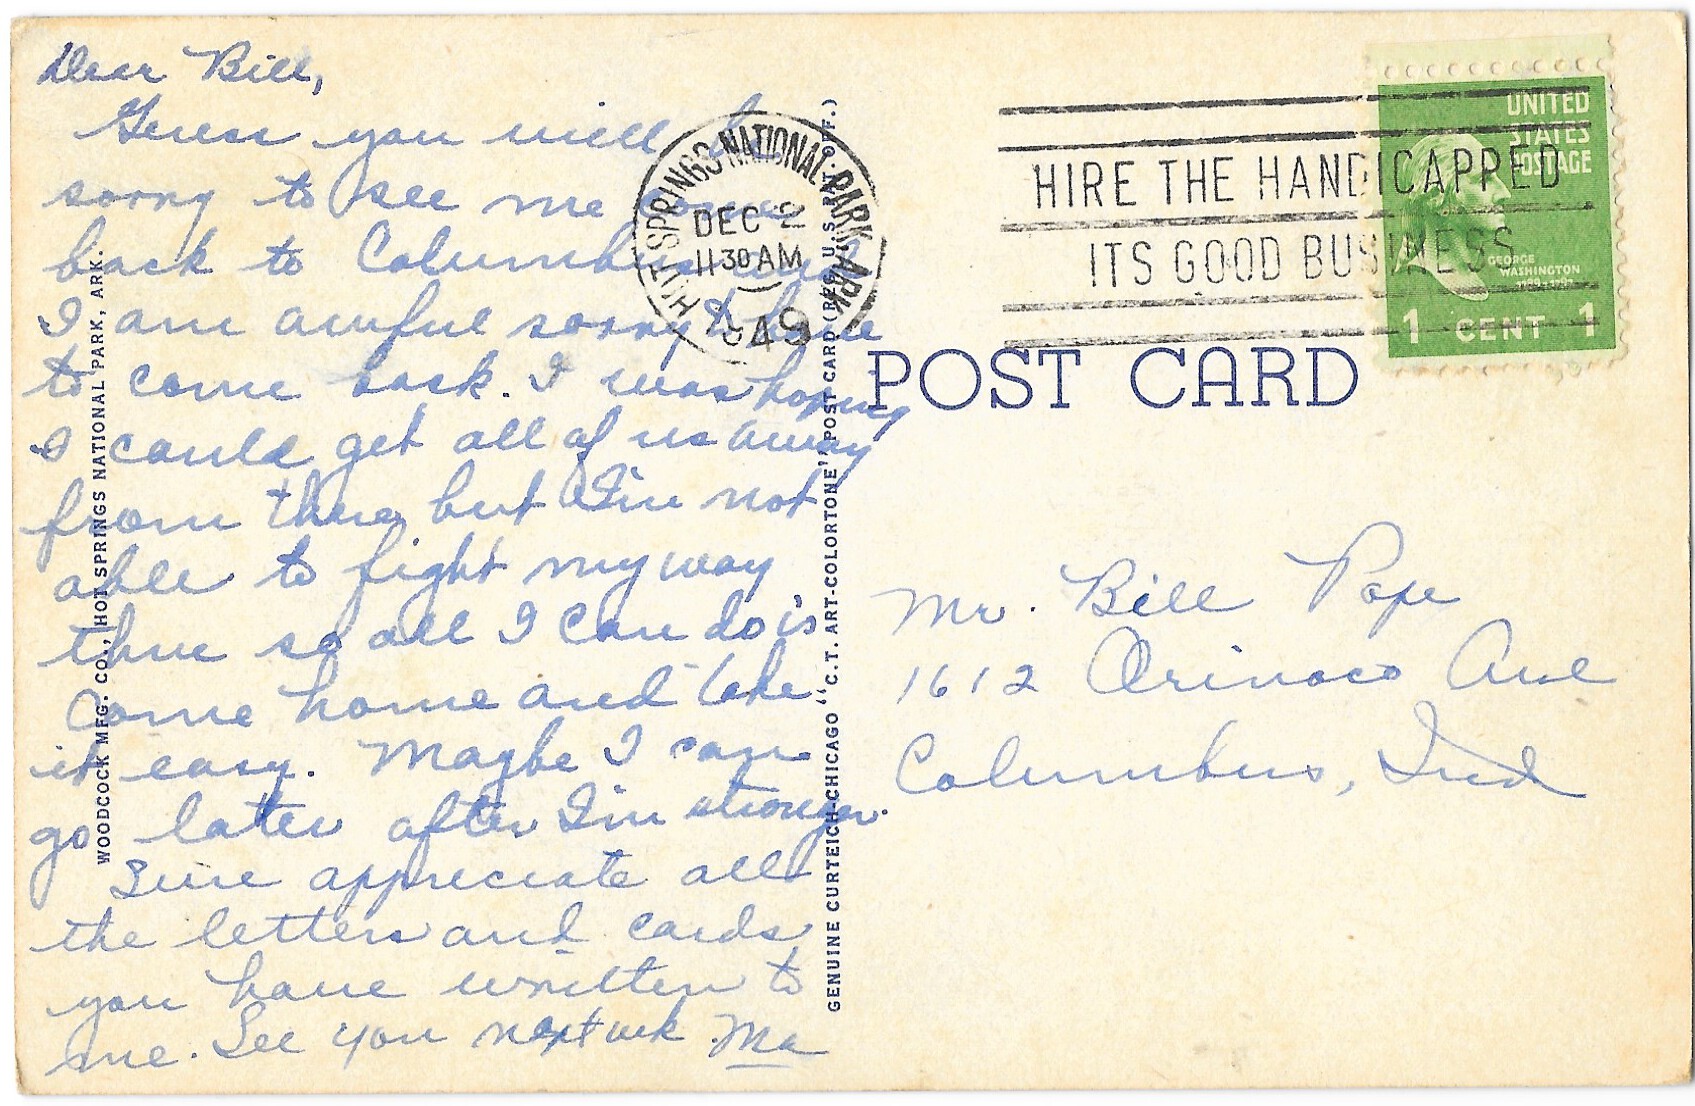 Dear Bill,
Guess you will be
sorry to see me come
back to Columbus and
I am awful sorry to have
to come back. I was hoping
I could get all of us away
from there but I'm not
able to fight my way
thru so all I can do is
come home and take
it easy. Maybe I can
go later after I'm stronger.
Sure appreciate all
the letters and cards
you have written to
me. See you next wk. Ma
WOODCOCK MFG. CO., HOT SPRINGS NATIONAL PARK, ARK.
GENUINE CURTEICH-CHICAGO "C.T. ART-COLORTONE" POST CARD (REG. U.S. PAT. OFF.)
HOT SPRINGS NATIONAL PARK, ARK.
DEC 2
11 30 AM
1949
HIRE THE HANDICAPPED
ITS GOOD BUSINESS
UNITED
STATES
POSTAGE
GEORGE
WASHINGTON
1 CENT 1
POST CARD
Mr. Bill Pope
1612 Orinoco Ave
Columbus, Ind